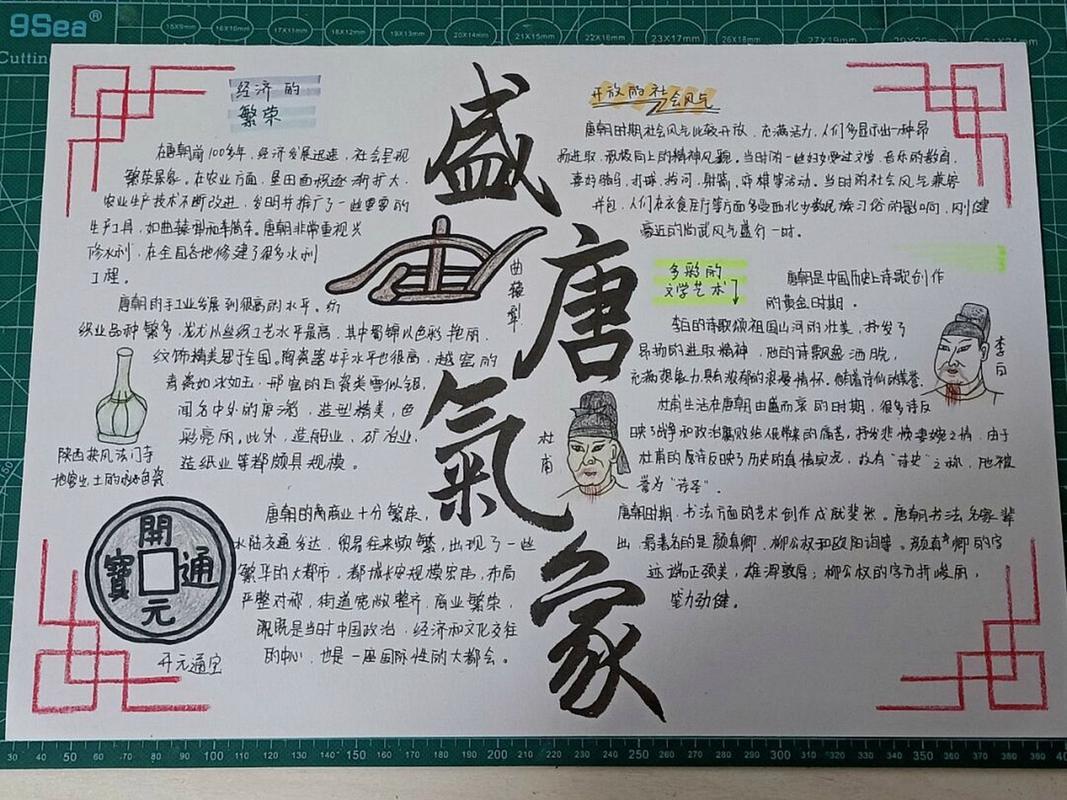 9Sea®
盛唐氣象
经济的
繁荣
在唐朝前100多年，经济发展迅速，社会呈现
繁荣景象。在农业方面，垦田面积逐渐扩大，
农业生产技术不断改进，发明并推广了一些重要的
生产工具，如曲辕犁和丰筒车。唐朝非常重视兴
修水利，在全国各地修建了很多水利
工程。
曲辕犁
唐朝的手工业发展到很高的水平。纺
织业品种繁多，尤尤以丝织工艺水平最高，其中蜀锦以色彩艳丽，
纹饰精美冠于全国。陶瓷器生产水平也很高，越窑的
青瓷如冰如玉，邢窑的白瓷类雪似银，
闻名中外的唐三彩，造型精美，色
彩亮丽。此外，造船业、矿冶业、
造纸业等都颇具规模。
陕西扶风法门寺
地宫出土的秘色瓷
唐朝的商业十分繁荣，
水陆交通发达，贸易往来频繁，出现了一些
繁华的大都市，都城长安规模宏伟，布局
严整对称，街道宽敞整齐，商业繁荣，
既是当时中国政治、经济和文化交往
的中心，也是一座国际性的大都会。
開元通寶
开元通宝
开放的社会风气
唐朝时期社会风气比较开放，充满活力，人们多显示出一种昂
扬进取、积极向上的精神风貌。当时的一些妇女受过文学、音乐的教育，
喜好骑马、打球、拔河、射箭、弈棋等活动。当时的社会风气兼容
并包，人们在衣食住行等方面多受西北少数民族习俗的影响，刚健
豪迈的尚武风气盛行一时。
多彩的
文学艺术
唐朝是中国历史上诗歌创作
的黄金时期。
李白的诗歌颂祖国山河的壮美，抒发了
昂扬的进取精神，他的诗歌飘逸洒脱，
充满想象力，具有浓郁的浪漫情怀，
李白
杜甫生活在唐朝由盛而衰的时期，很多诗反
映了战争和政治腐败给人民带来的痛苦，抒发悲愤凄婉之情，由于
杜甫的诗反映了历史的真情实况，故有“诗史”之称，他被
誉为“诗圣”。
杜甫
唐朝时期，书法方面的艺术创作成就斐然。唐朝书法名家辈
出，最著名的是颜真卿、柳公权和欧阳询等。颜真卿的字
迹端正劲美，雄浑敦厚；柳公权的字方折峻丽，
笔力劲健。